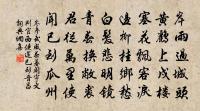 岸雨過城頭
黃鸝上戍樓
塞花飄客淚
邊柳挂鄉愁
白髮悲明鏡
青春換敝裘
君從萬里使
聞已到瓜州
岑參武威春暮聞宇文
判官西使還已到晉昌